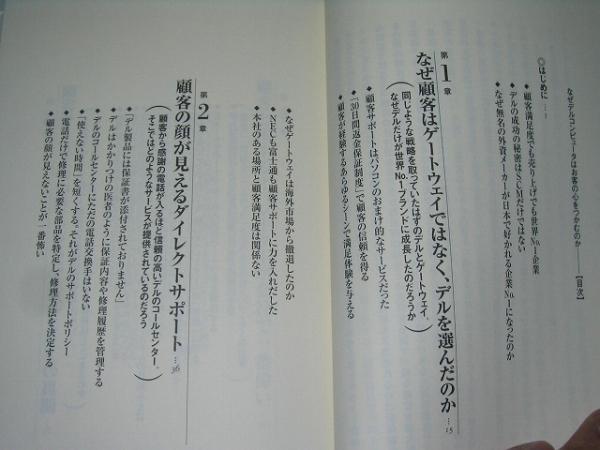 なぜデルコンピュータはお客の心をつかむのか
【目次】
◎はじめに……
◆顧客満足度でも売り上げでも世界No.1企業
◆デルの成功の秘密はSCMだけではない
◆なぜ無名の外資メーカーが日本で好かれる企業No.1になったのか
第1章
なぜ顧客はゲートウェイではなく、デルを選んだのか…15
(同じような戦略を取っていたはずのデルとゲートウェイ。
なぜデルだけが世界No.1ブランドに成長したのだろうか)
◆顧客サポートはパソコンのおまけ的なサービスだった
◆「30日間返金保証制度」で顧客の信頼を得る
◆顧客が経験するあらゆるシーンで満足体験を与える
◆なぜゲートウェイは海外市場から撤退したのか
◆NECも富士通も顧客サポートに力を入れだした
◆本社のある場所と顧客満足度は関係ない
第2章
顧客の顔が見えるダイレクトサポート…36
(顧客から感謝の電話が入るほど信頼の高いデルのコールセンター。
そこではどのようなサービスが提供されているのだろう)
◆「デル製品には保証書が添付されておりません」
◆デルはかかりつけの医者のように保証内容や修理履歴を管理する
◆デルのコールセンターにただの電話交換手はいない
◆「使えない時間」を短くする。それがデルのサポートポリシー
◆電話だけで修理に必要な部品を特定し、修理方法を決定する
◆顧客の顔が見えないことが一番怖い